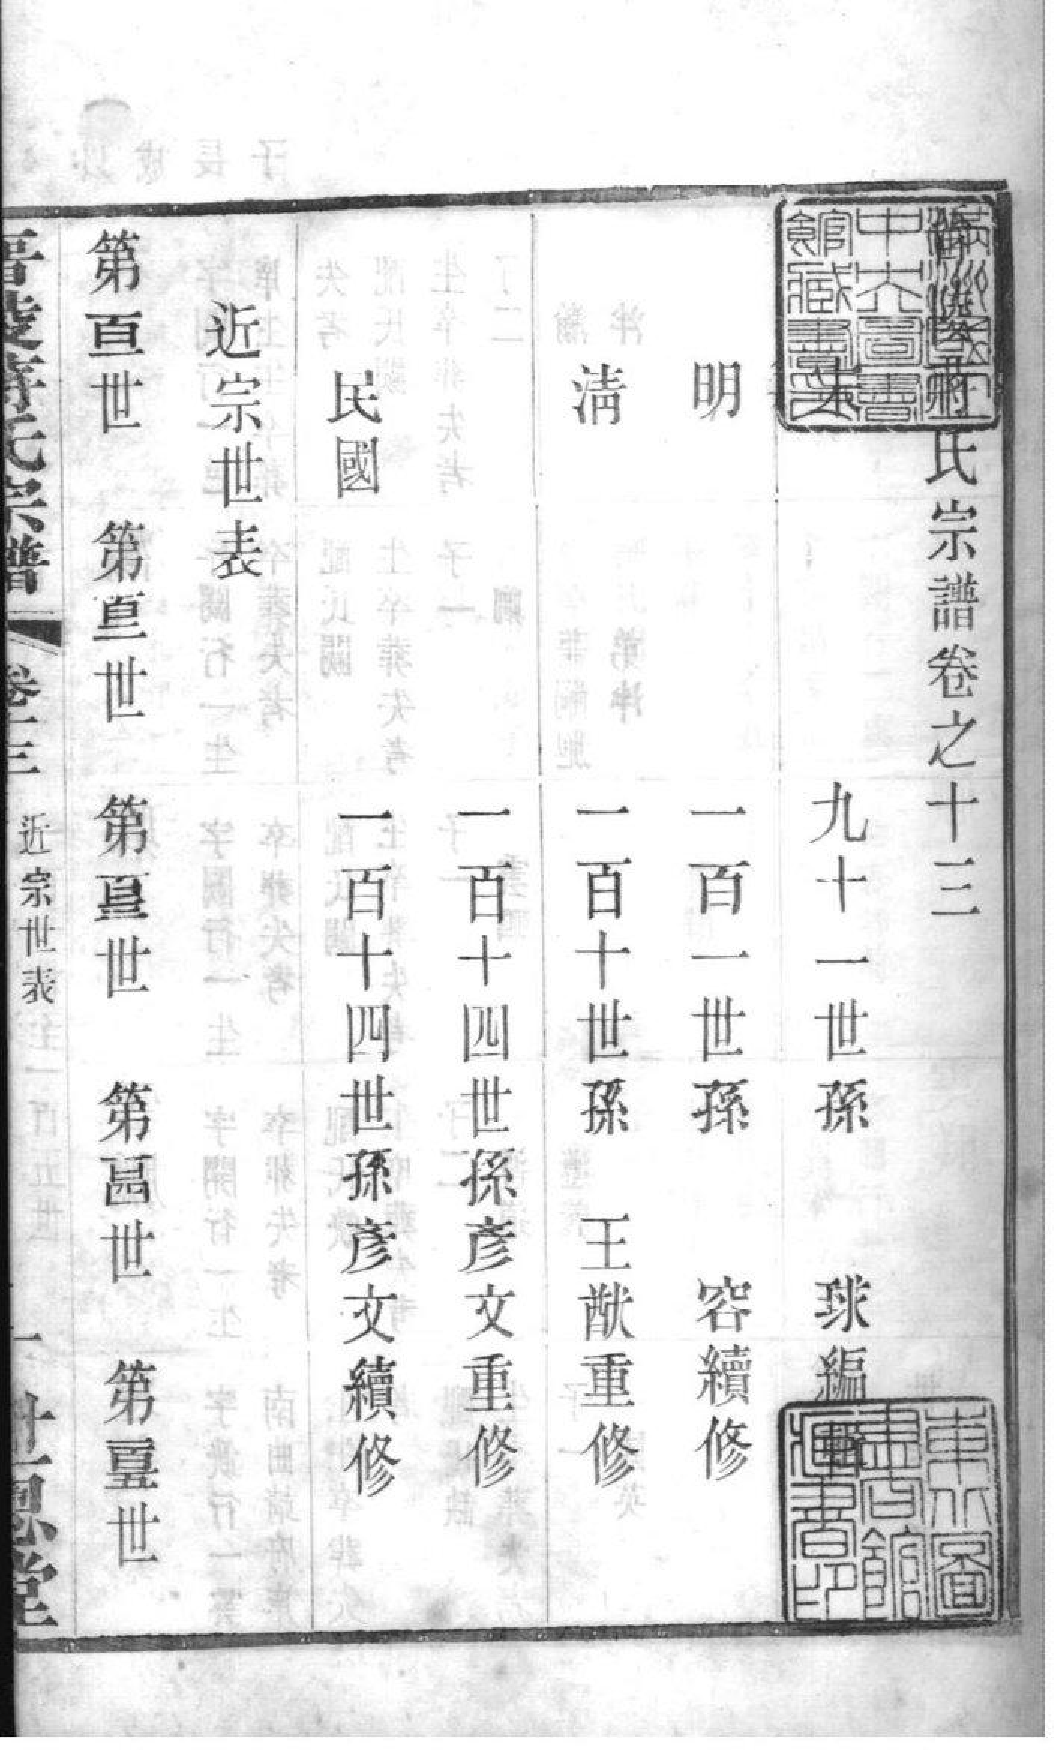 氏宗譜卷之十三
宋 九十一世孫 球編輯
明 一百一世孫 容續修
清 一百十世孫 王猷重修
一百十四世孫彥文重修
民國 一百十四世孫彥文續修
近宗世表
第百一世 第百二世 第百三世 第百四世 第百五世
晉陵蔣氏宗譜 卷十三 近宗世表 一
中央圖書
館藏書印
東北圖
書館
藏書印